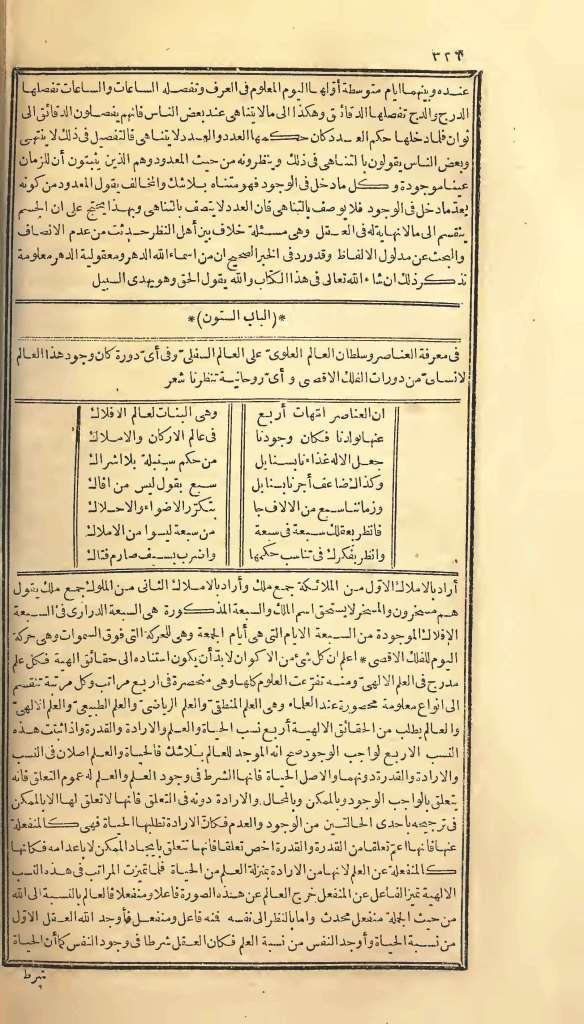 ٣٢٦
عنده وبينهما ايام متوسطة أوّلها اليوم المعلوم فى العرف وتفصله الساعات والساعات تفصلها
الدرج والدرج تفصلها الدقائق وهكذا الى مالا يتناهى عند بعض الناس فانهم يفصلون الدقائق الى
ثوان فلما دخلها حكم العدد كان حكمها العدد والعدد لا يتناهى فالتفصيل فى ذلك لا ينتهى
وبعض الناس يقولون بالتناهى فى ذلك وينظرونه من حيث المعدود وهم الذين يثبتون أن للزمان
عينا موجودة وكل ما دخل فى الوجود فهو متناه بلا شك والمخالف يقول المعدود من كونه
يعدّ ما دخل فى الوجود فلا يوصف بالتناهى فان العدد لا يتصف بالتناهى وبهذا يحتج على ان الجسم
ينقسم الى مالا نهاية له فى العقل وهى مسئلة خلاف بين أهل النظر حدثت من عدم الانصاف
والبحث عن مدلول الالفاظ وقد ورد فى الخبر الصحيح ان من اسماء الله الدهر ومعقولية الدهر معلومة
نذكر ذلك ان شاء الله تعالى فى هذا الكتاب والله يقول الحق وهو يهدى السبيل
*(الباب الستون)*
فى معرفة العناصر وسلطان العالم العلوى على العالم السفلى وفى أى دورة كان وجود هذا العالم
لانسانى من دورات الفلك الاقصى وأى روحانية تنظرنا شعر
ان العناصر امّهات أربع وهى البنات لعالم الافلاك
عنها تولدنا فكان وجودنا فى عالم الاركان والاملاك
جعل الاله غذاءنا بسنابل من حكم سنبلة بلا اشراك
وكذاك ضاعف أجرنا بسنابل سبع بقول ليس من افاك
وزماننا سبع من الالاف جا بتكرّر الاضواء والاحلاك
فانظر بعقلك سبعة فى سبعة من سبعة ليسوا من الاملاك
وانظر بفكرك فى تناسب حكمها واضرب بسيف صارم فتاك
أراد بالاملاك الاوّل من الملائكة جمع ملك وأراد بالاملاك الثانى من الملوك جمع ملك يقول
هم مسخرون والمسخر لا يستحق اسم الملك والسبعة المذكورة هى السبعة الدرارى فى السبعة
الافلاك الموجودة من السبعة الايام التى هى أيام الجمعة وهى للحركة التى فوق السموات وهى حركة
اليوم للفلك الاقصى * اعلم ان كل شئ من الاكوان لا بدّ أن يكون استناده الى حقائق الهية فكل علم
مدرج فى العلم الالهى ومنه تفرّعت العلوم كلها وهى منحصرة فى اربع مراتب وكل مرتبة تنقسم
الى انواع معلومة محصورة عند العلماء وهى العلم المنطقى والعلم الرياضى والعلم الطبيعى والعلم الالهى
والعالم يطلب من الحقائق الالهية أربع نسب الحياة والعلم والارادة والقدرة واذا ثبتت هذه
النسب الاربع لواجب الوجود صح انه الموجد للعالم بلا شك فالحياة والعلم اصلان فى النسب
والارادة والقدرة دونهما والاصل الحياة فانها الشرط فى وجود العلم والعلم له عموم التعلق فانه
يتعلق بالواجب الوجود وبالممكن وبالمحال والارادة دونه فى التعلق فانها لا تعلق لها الا بالممكن
فى ترجيحه باحدى الحالتين من الوجود والعدم فكانّ الارادة تطلبها الحياة فهى كالمنفعلة
عنها فانها اعمّ تعلقا من القدرة والقدرة اخص تعلقا فانها تتعلق بايجاد الممكن لا باعدامه فكانها
كالمنفعلة عن العلم لانها من الارادة بمنزلة العلم من الحياة فلما تميزت المراتب فى هذه النسب
الالهية تميز الفاعل عن المنفعل خرج العالم عن هذه الصورة فاعلا ومنفعلا فالعالم بالنسبة الى الله
من حيث الجملة منفعل محدث واما بالنظر الى نفسه فمنه فاعل ومنفعل فأوجد الله العقل الاوّل
من نسبة الحياة وأوجد النفس من نسبة العلم فكان العقل شرطا فى وجود النفس كما أن الحياة
شرط